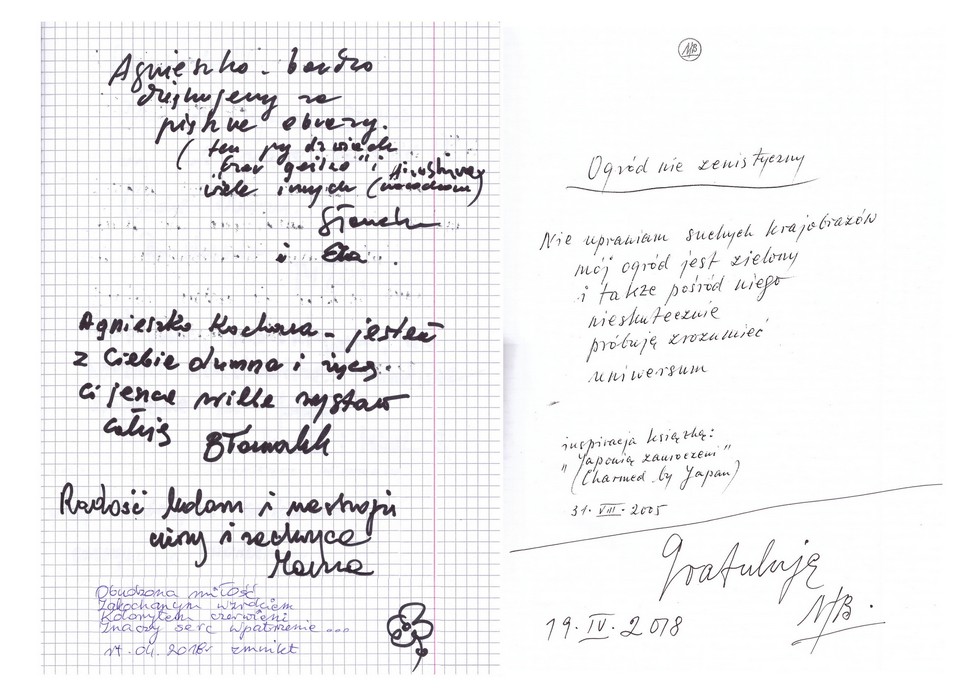 Agnieszko - bardzo
dziękujemy za
piękne obrazy.
(ten przy dźwiękach
i
wiele innych
i Ela
Agnieszko Kochana - jestem
z Ciebie dumna i życzę
Ci jeszcze wystaw
całuję
Radość ludom i nastroju
ciszy i zachwyca
Obudzona miłość
Zakochanym wzrokiem
Kolorytem czerwieni
Znaczy serc wpatrzenie ...
14.04.2018r zmnikt
MB
Ogród nie zenistyczny
Nie uprawiam suchych krajobrazów
mój ogród jest zielony
i także pośród niego
nieskutecznie
próbuję zrozumieć
uniwersum
inspiracja książką:
"Japonią zauroczeni"
(Charmed by Japan)
31. VIII. 2005
Gratuluję
MB.
19. IV. 2018